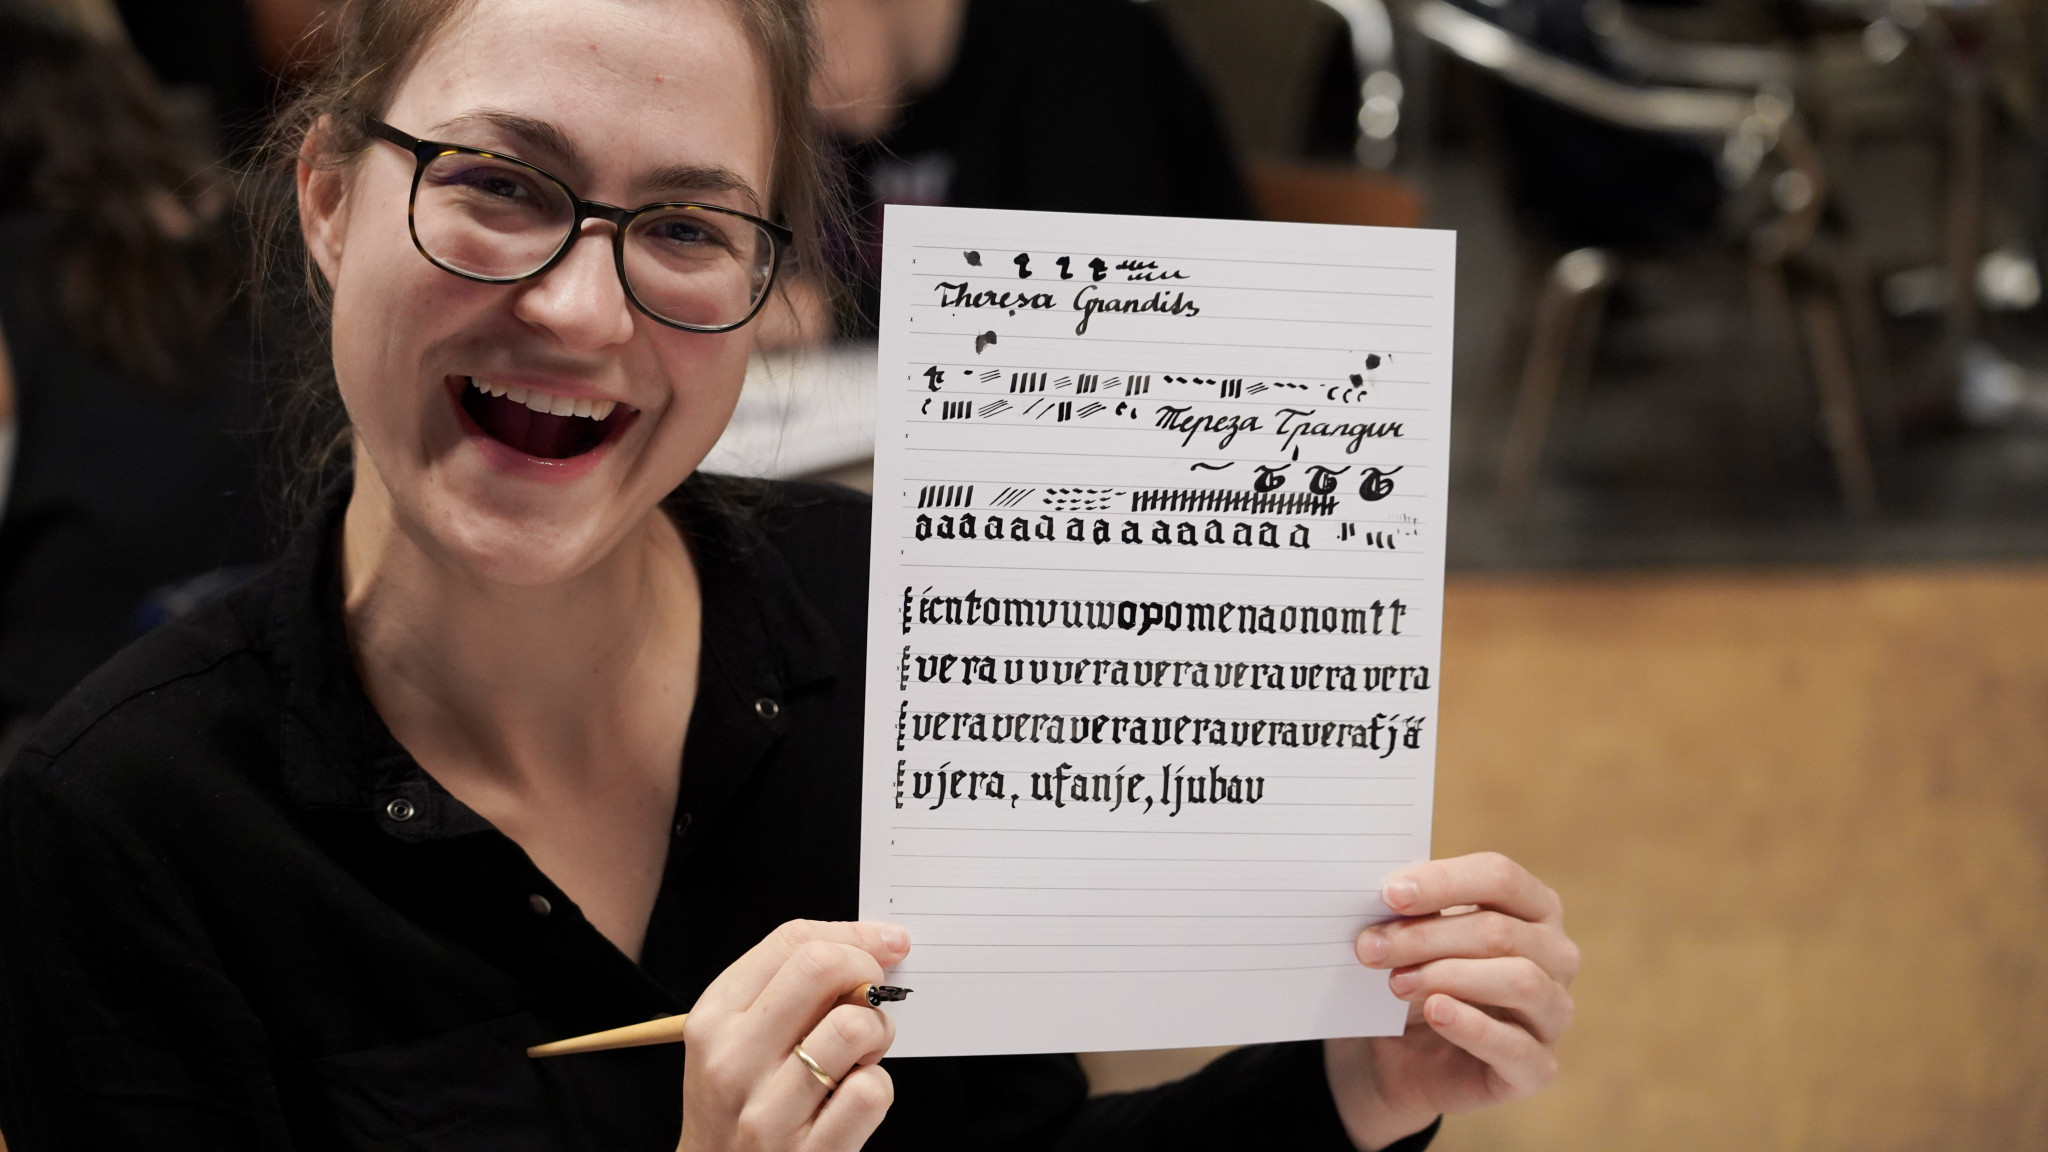 Theresa Grandits
Тереза Грандич
aaaaaaaaaaaaaaa
icntomvuwopomenaonomtt
vera u v v vera vera vera vera vera
vera vera vera vera vera vera f j a
vjera, ufanje, ljubav